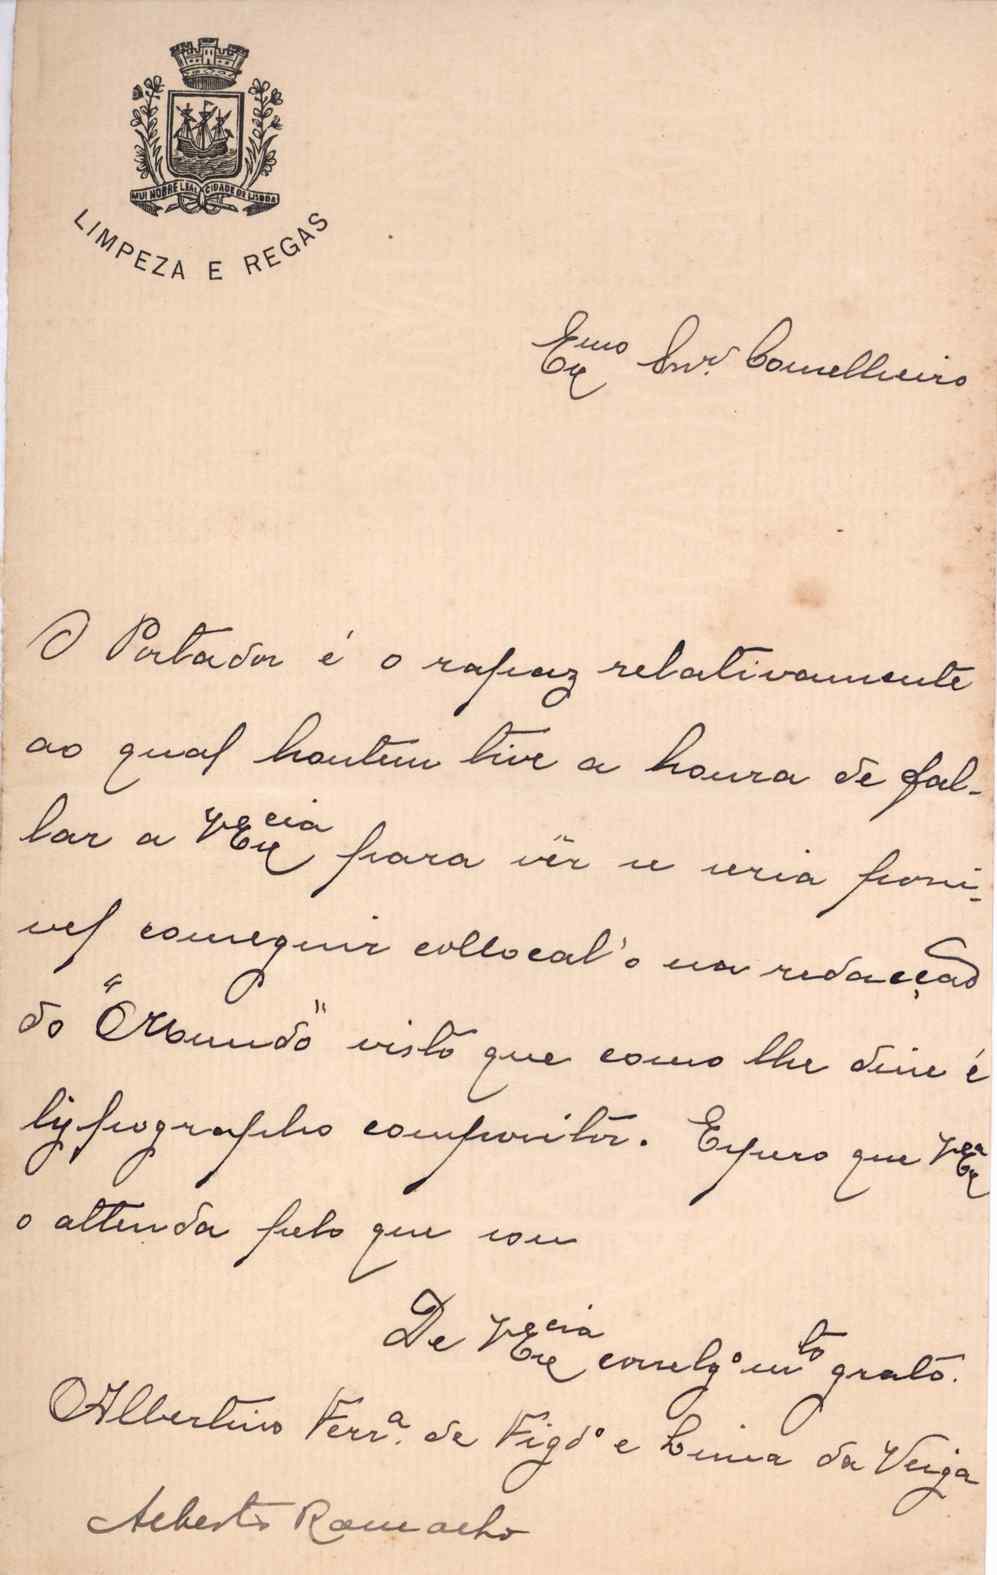 MUI NOBRE LEAL CIDADE DE LISBOA
LIMPEZA E REGAS
Exmo Snr. Conselheiro
O Portador é o rapaz relativamente
ao qual hontem tive a honra de fal-
lar a V Excia para vêr se seria possi-
vel conseguir collocal'o na redacção
do "Mundo" visto que como lhe disse é
typographo compositor. Espero que V Exa
o attenda pelo que sou
De V Excia correlgo mto grato.
Albertino Ferra. de Figdo e Lima da Veiga
Alberto Ramacho